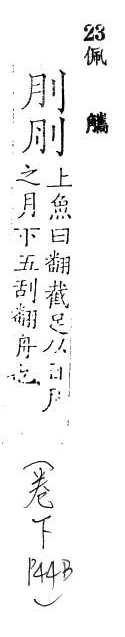 23
佩 觿
刖刖
上魚曰翻截足从日月
之月下五刮翻舟
(卷下 P44B)